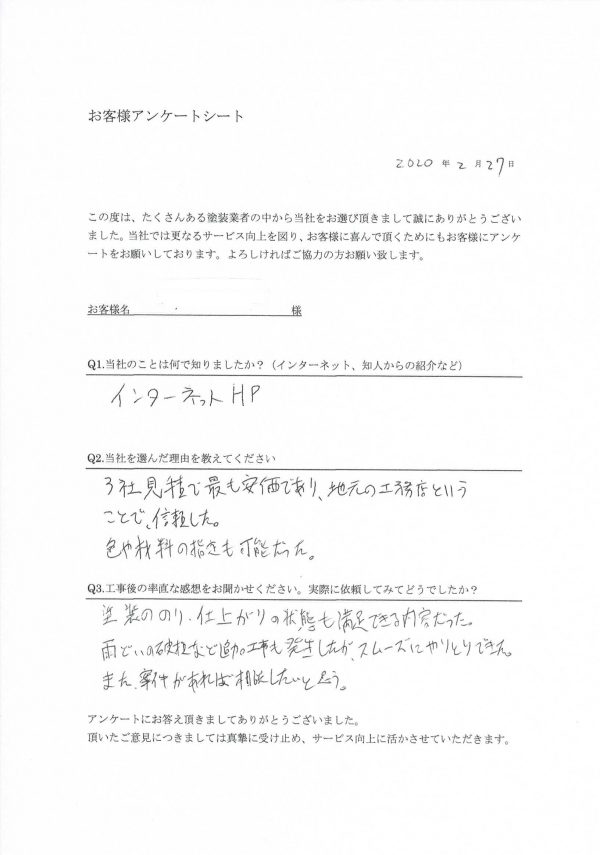 お客様アンケートシート
2020 年 2 月 27 日
この度は、たくさんある塗装業者の中から当社をお選び頂きまして誠にありがとうござい
ました。当社では更なるサービス向上を図り、お客様に喜んで頂くためにもお客様にアンケ
ートをお願いしております。よろしければご協力の方お願い致します。
お客様名 様
Q1.当社のことは何で知りましたか？（インターネット、知人からの紹介など）
インターネット HP
Q2.当社を選んだ理由を教えてください
3社見積で最も安価であり、地元の工務店という
ことで、信頼した。
色や材料の指定も可能だった。
Q3.工事後の率直な感想をお聞かせください。実際に依頼してみてどうでしたか？
塗装ののり、仕上がりの状態も満足できる内容だった。
雨どいの破損など追加工事も発生したが、スムーズにやりとりできた。
また、案件があれば相談したいと思う。
アンケートにお答え頂きましてありがとうございました。
頂いたご意見につきましては真摯に受け止め、サービス向上に活かさせていただきます。